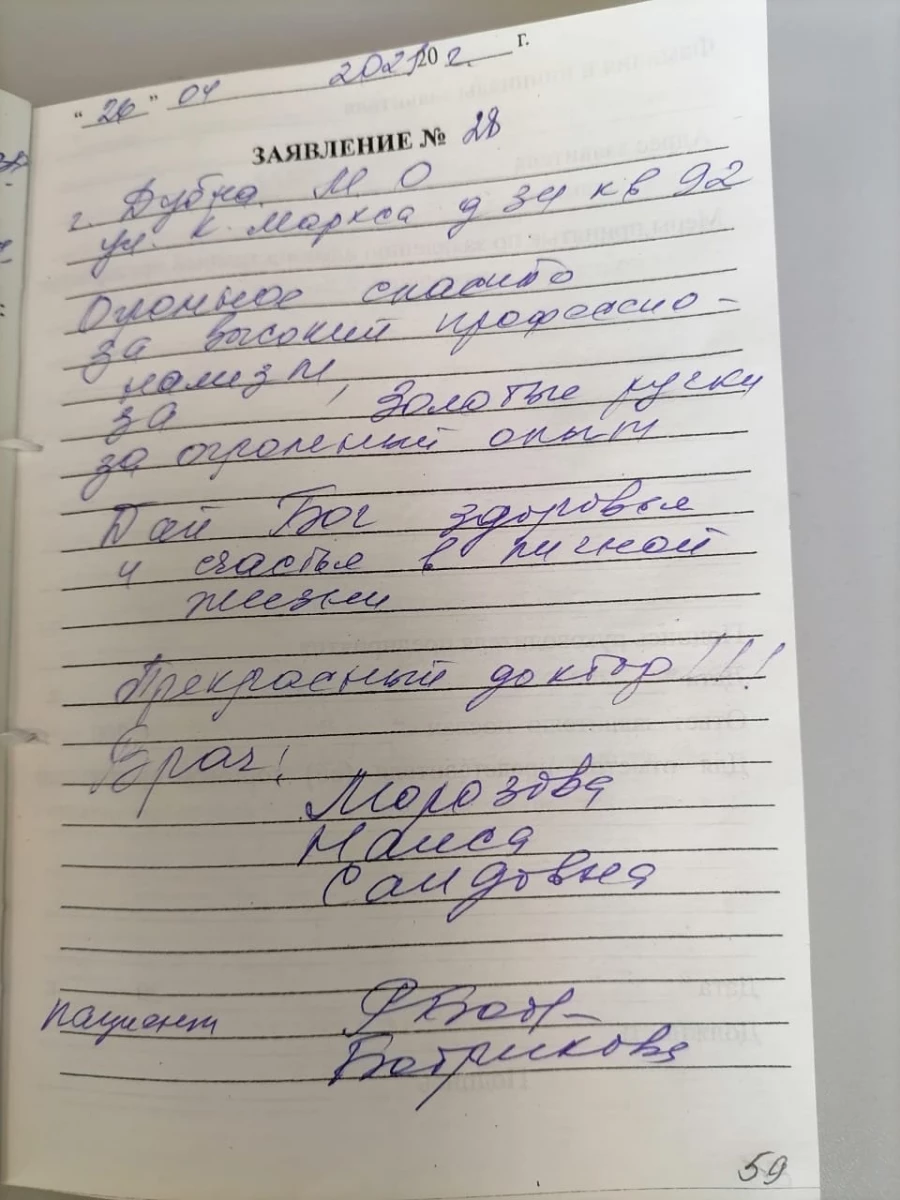 " 26 " 04 2021 20 г. г.
ЗАЯВЛЕНИЕ № 28
г. Дубна. М. О
ул. К. Маркса д 34 кв 92
Огромное спасибо
за высокий професси о-
нализм,
за золотые ручки
за огромный опыт
Дай Бог здоровья
и счастья в личной
жизни
Прекрасный доктор!!!
Врач:
Морозова
Наиса
Саидовна
пациент
Батрикова
59